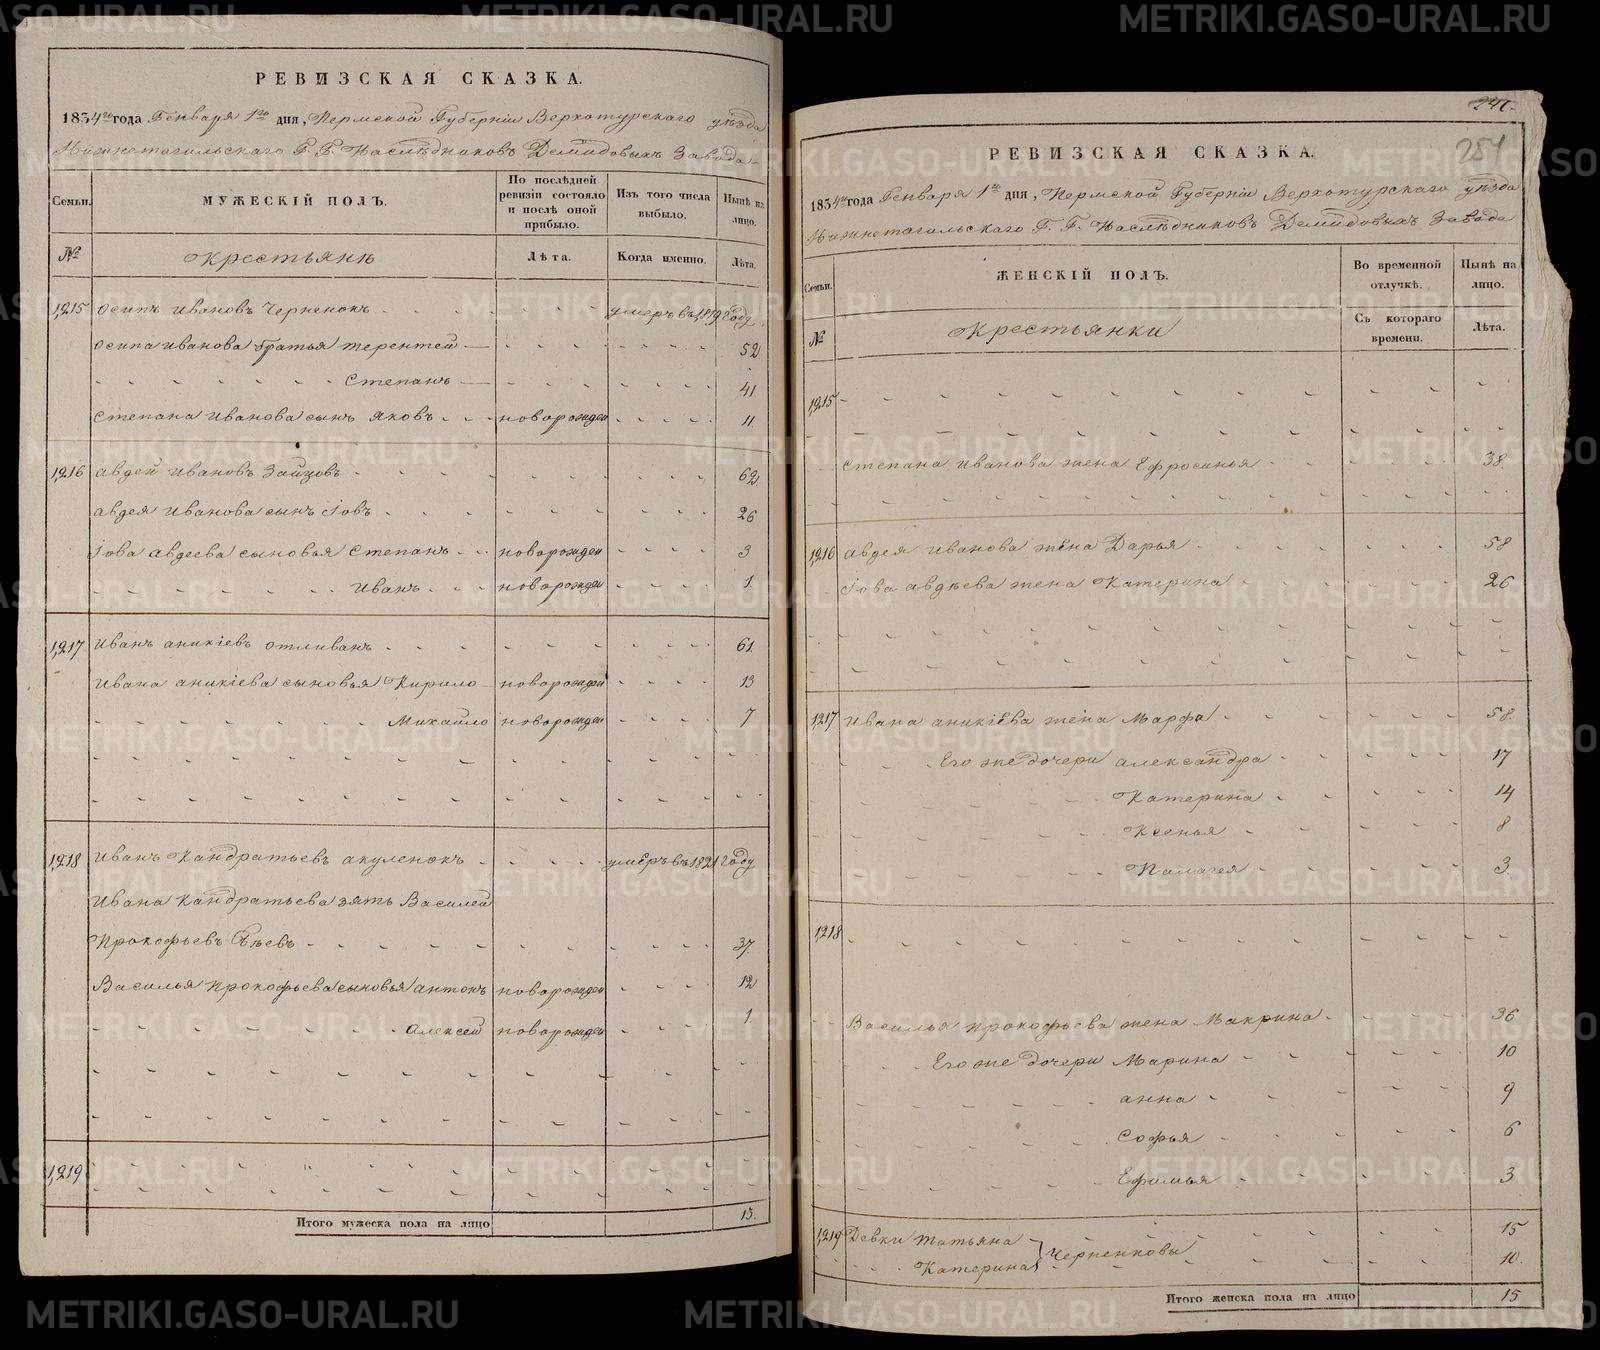 РЕВИЗСКАЯ СКАЗКА.
1834го года Генваря 1го дня, Пермской Губерніи Верхотурскаго уѣзда
Нижнетагильскаго Г. Г. Наслѣдниковъ Демидовыхъ Завода
Семьи.
МУЖЕСКІЙ ПОЛЪ.
По послѣдней ревизіи состояло и послѣ оной прибыло.
Изъ того числа выбыло.
Нынѣ на лицо.
№
Крестьянѣ
Лѣта.
Когда именно.
Лѣта.
1,215 Осипъ Ивановъ Черненокъ умеръ въ 1,819 Году
Осипа Иванова братья Терентей 52
Степанъ 41
Степана Иванова сынъ Яковъ новорожден 11
1,216 Авдей Ивановъ Зайцовъ 62
Авдея Иванова сынъ Іовъ 26
Іова Авдеева сыновья Степанъ новорожден 3
Иванъ новорожден 1
1,217 Иванъ Аникіевъ Отливанъ 61
Ивана Аникіева сыновья Кирило новорожден 13
Михайло новорожден 7
1,218 Иванъ Кандратьевъ Акуленокъ умеръ въ 1821 Году
Ивана Кандратьева зять Василей
Прокофьевъ 37.
Василья Прокофьева сыновья Антонъ новорожден 12
Алексей новорожден 1.
1,219
Итого мужеска пола на лицо 13.
241.
251
РЕВИЗСКАЯ СКАЗКА.
1834го года Генваря 1го дня, Пермской Губерніи Верхотурскаго уѣзда
Нижнетагильскаго Г. Г. Наслѣдниковъ Демидовыхъ Завода
Семьи.
ЖЕНСКІЙ ПОЛЪ.
Во временной отлучкѣ.
Нынѣ на лицо.
№
Крестьянки
Съ котораго времени.
Лѣта.
1,215
Степана Иванова жена Ефросинья 38.
1,216 Авдея Иванова жена Дарья 58
Іова Авдѣева жена Катерина 26
1,217 Ивана Аникіева жена Марфа 58.
Его же дочери Александра 17
Катерина 14
Ксенья 8
Палагея 3.
1,218
Василья Прокофьева жена Макрина 36
Его же дочери Марина 10
Анна 9
Софья 6
Ефимья 3
1,219 Девки Татьяна 15
Катерина Черненковы 10.
Итого женска пола на лицо 15
METRIKI.GASO-URAL.RU